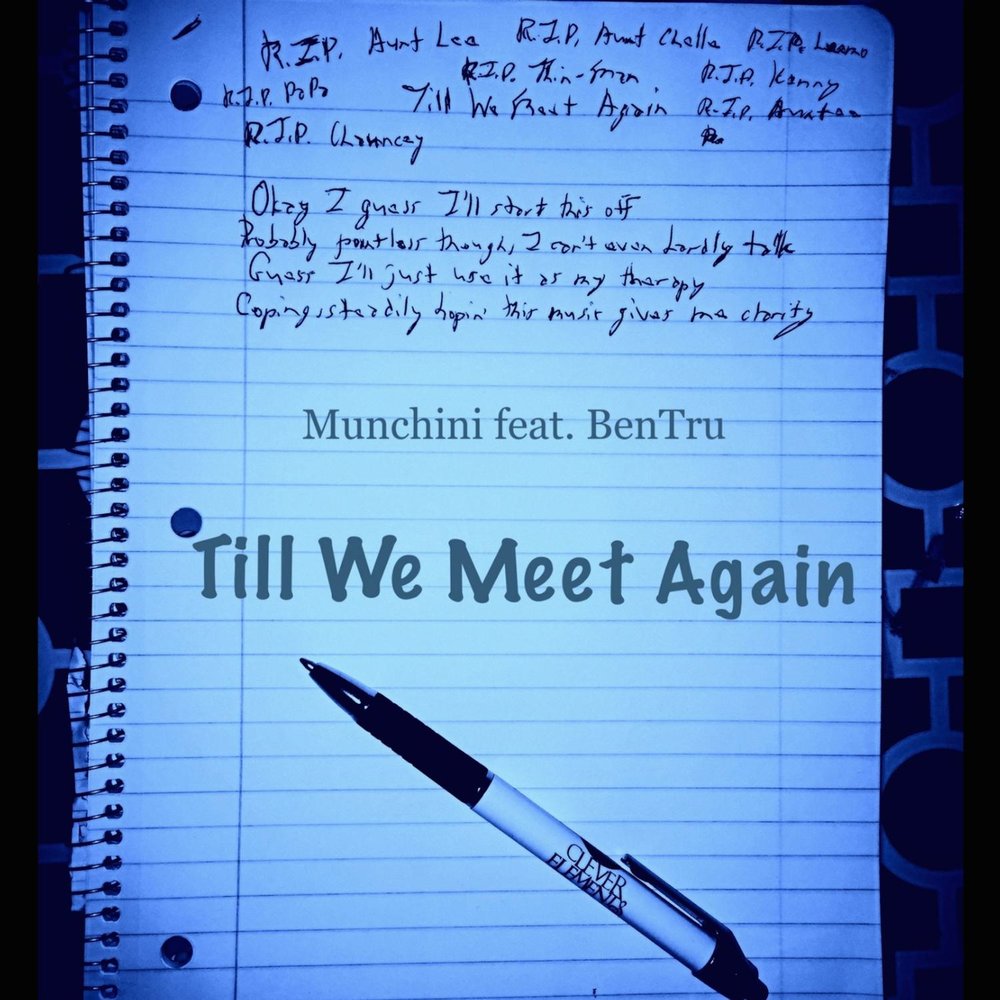 R.I.P. Aunt Lee R.I.P. Aunt Chella R.I.P.
R.I.P. PoPo R.I.P. Thin-Man R.I.P. Kenny
Till We Meet Again R.I.P.
R.I.P. Chauncey
Okay I guess I'll start this off
Probably pointless though, I can't even hardly talk
Guess I'll just use it as my therapy
Coping, steadily hopin' this music gives me clarity
Munchini feat. BenTru
Till We Meet Again
CLEVER
ELEMENTS